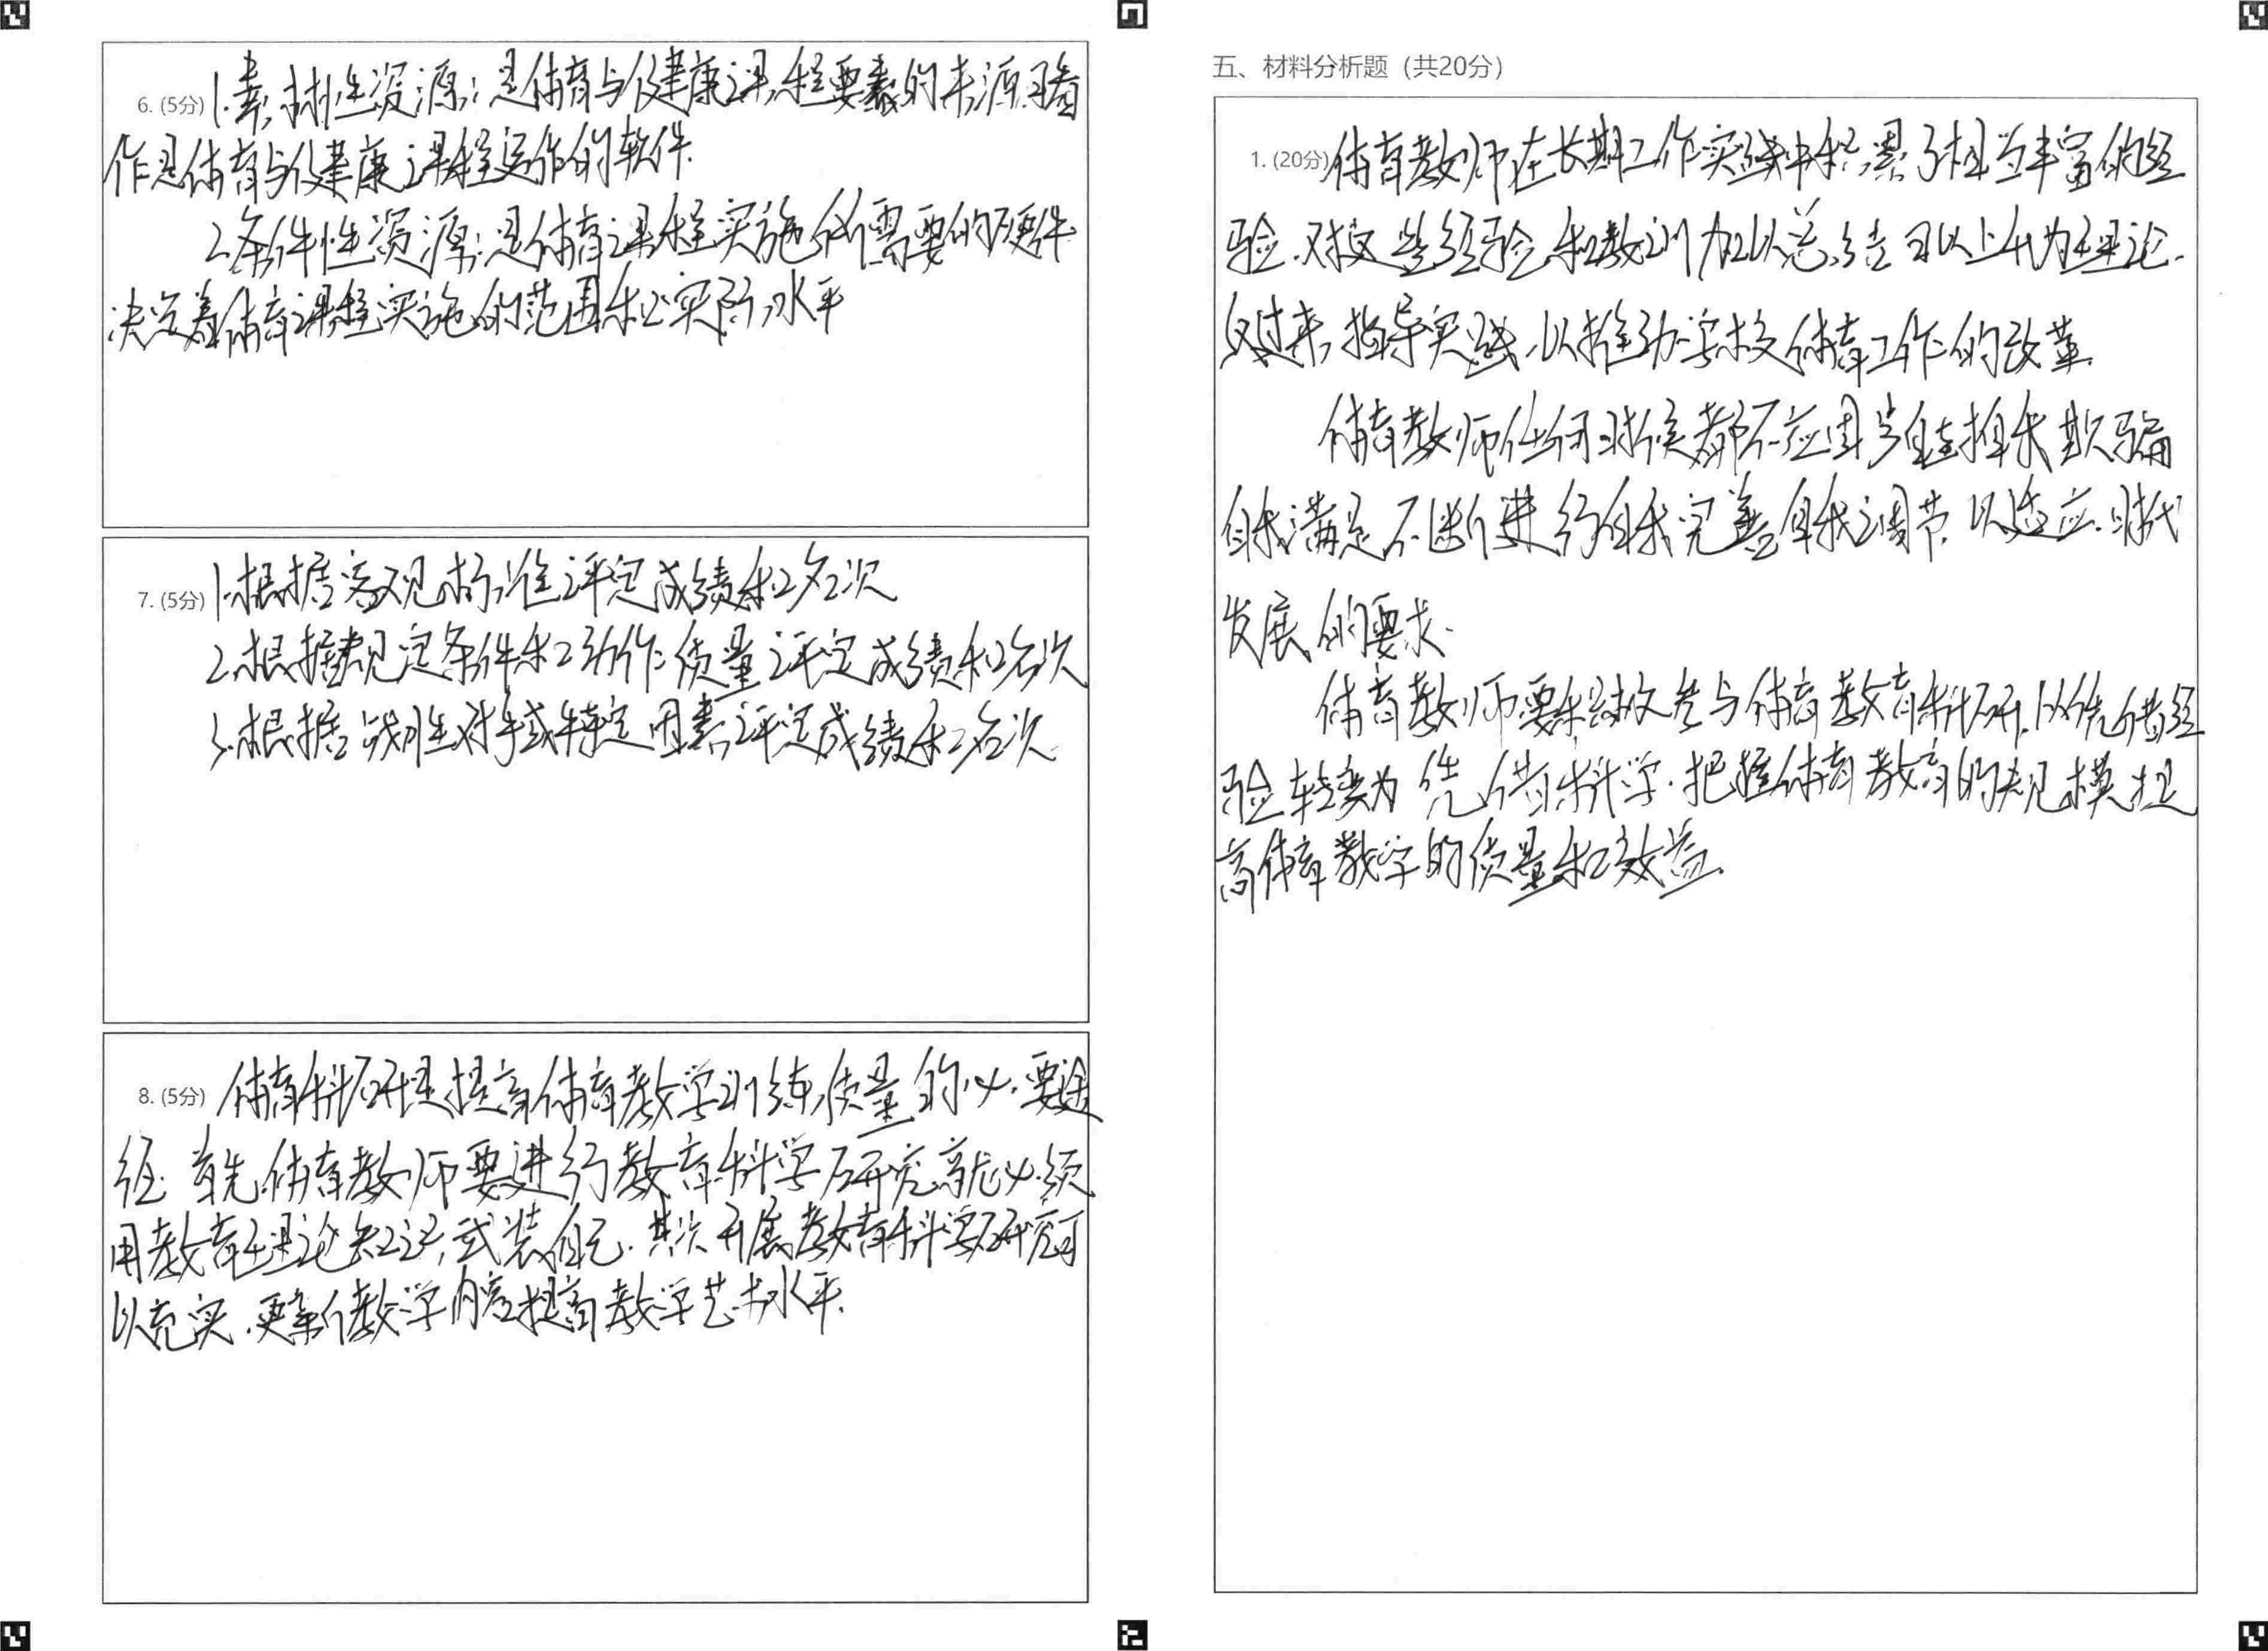 6. (5分) 1.素材性资源：是体育与健康课程要素的来源.可看
作是体育与健康课程运作的软件.
2.条件性资源：是体育课程实施所需要的硬件
决定着体育课程实施的范围和实际水平
7. (5分) 1.根据客观标准评定成绩和名次
2.根据规定条件和动作质量评定成绩和名次
3.根据战胜对手或特定因素评定成绩和名次.
8. (5分) 体育科研是提高体育教学训练质量的必要途
径. 首先.体育教师要进行教育科学研究就必须
用教育理论知识武装自己. 其次开展教育科学研究可
以充实.更新教学内容提高教学艺术水平.
五、材料分析题（共20分）
1. (20分) 体育教师在长期工作实践中积累了相当丰富的经
验.对这些经验和教训加以总结可以上升为理论.
反过来指导实践.以推动学校体育工作的改革.
体育教师任何时候都不应固步自封自我欺骗
自我满足不断进行自我完善自我调节.以适应.时代
发展的要求.
体育教师要积极参与体育教育科研.以凭借经
验转变为凭借科学.把握体育教育的规模提
高体育教学的质量和效益.